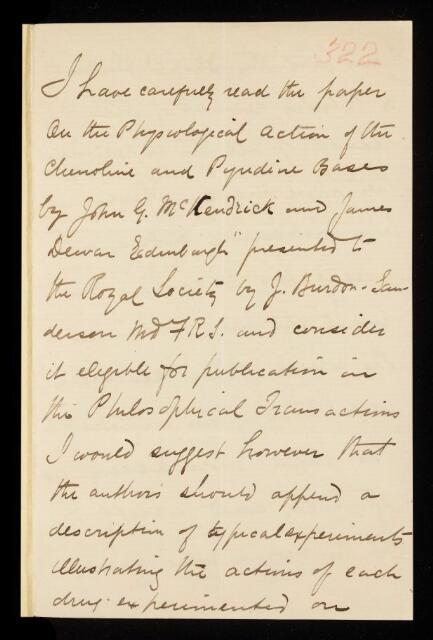 322
I have carefully read the paper
On the Physiological action of the
Chenoline and Pyridine Bases
by John G. McKendrick and James
Dewar Edinburgh" presented to
the Royal Society by J. Burdon-San-
derson Md F.R.S. and consider
it eligible for publication in
the Philosophical Transactions
I would suggest however that
the authors should append a
description of typical experiments
illustrating the actions of each
drug experimented on